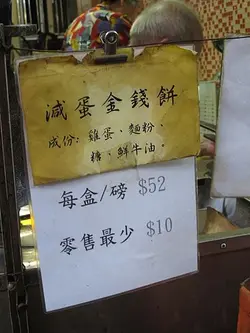 減蛋金錢餅
成份：雞蛋、麵粉、
糖、鮮牛油。
每盒/磅 $52
零售最少 $10